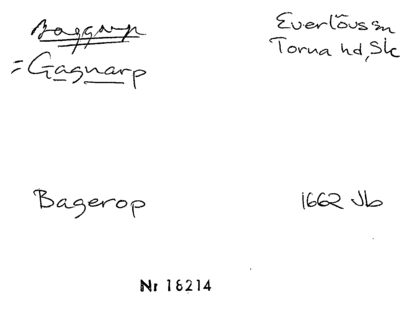 Baggarp
= Gagnarp
Everlövs sn
Torna hd, Sk
Bagerop
1662 Jb
Nr 18214